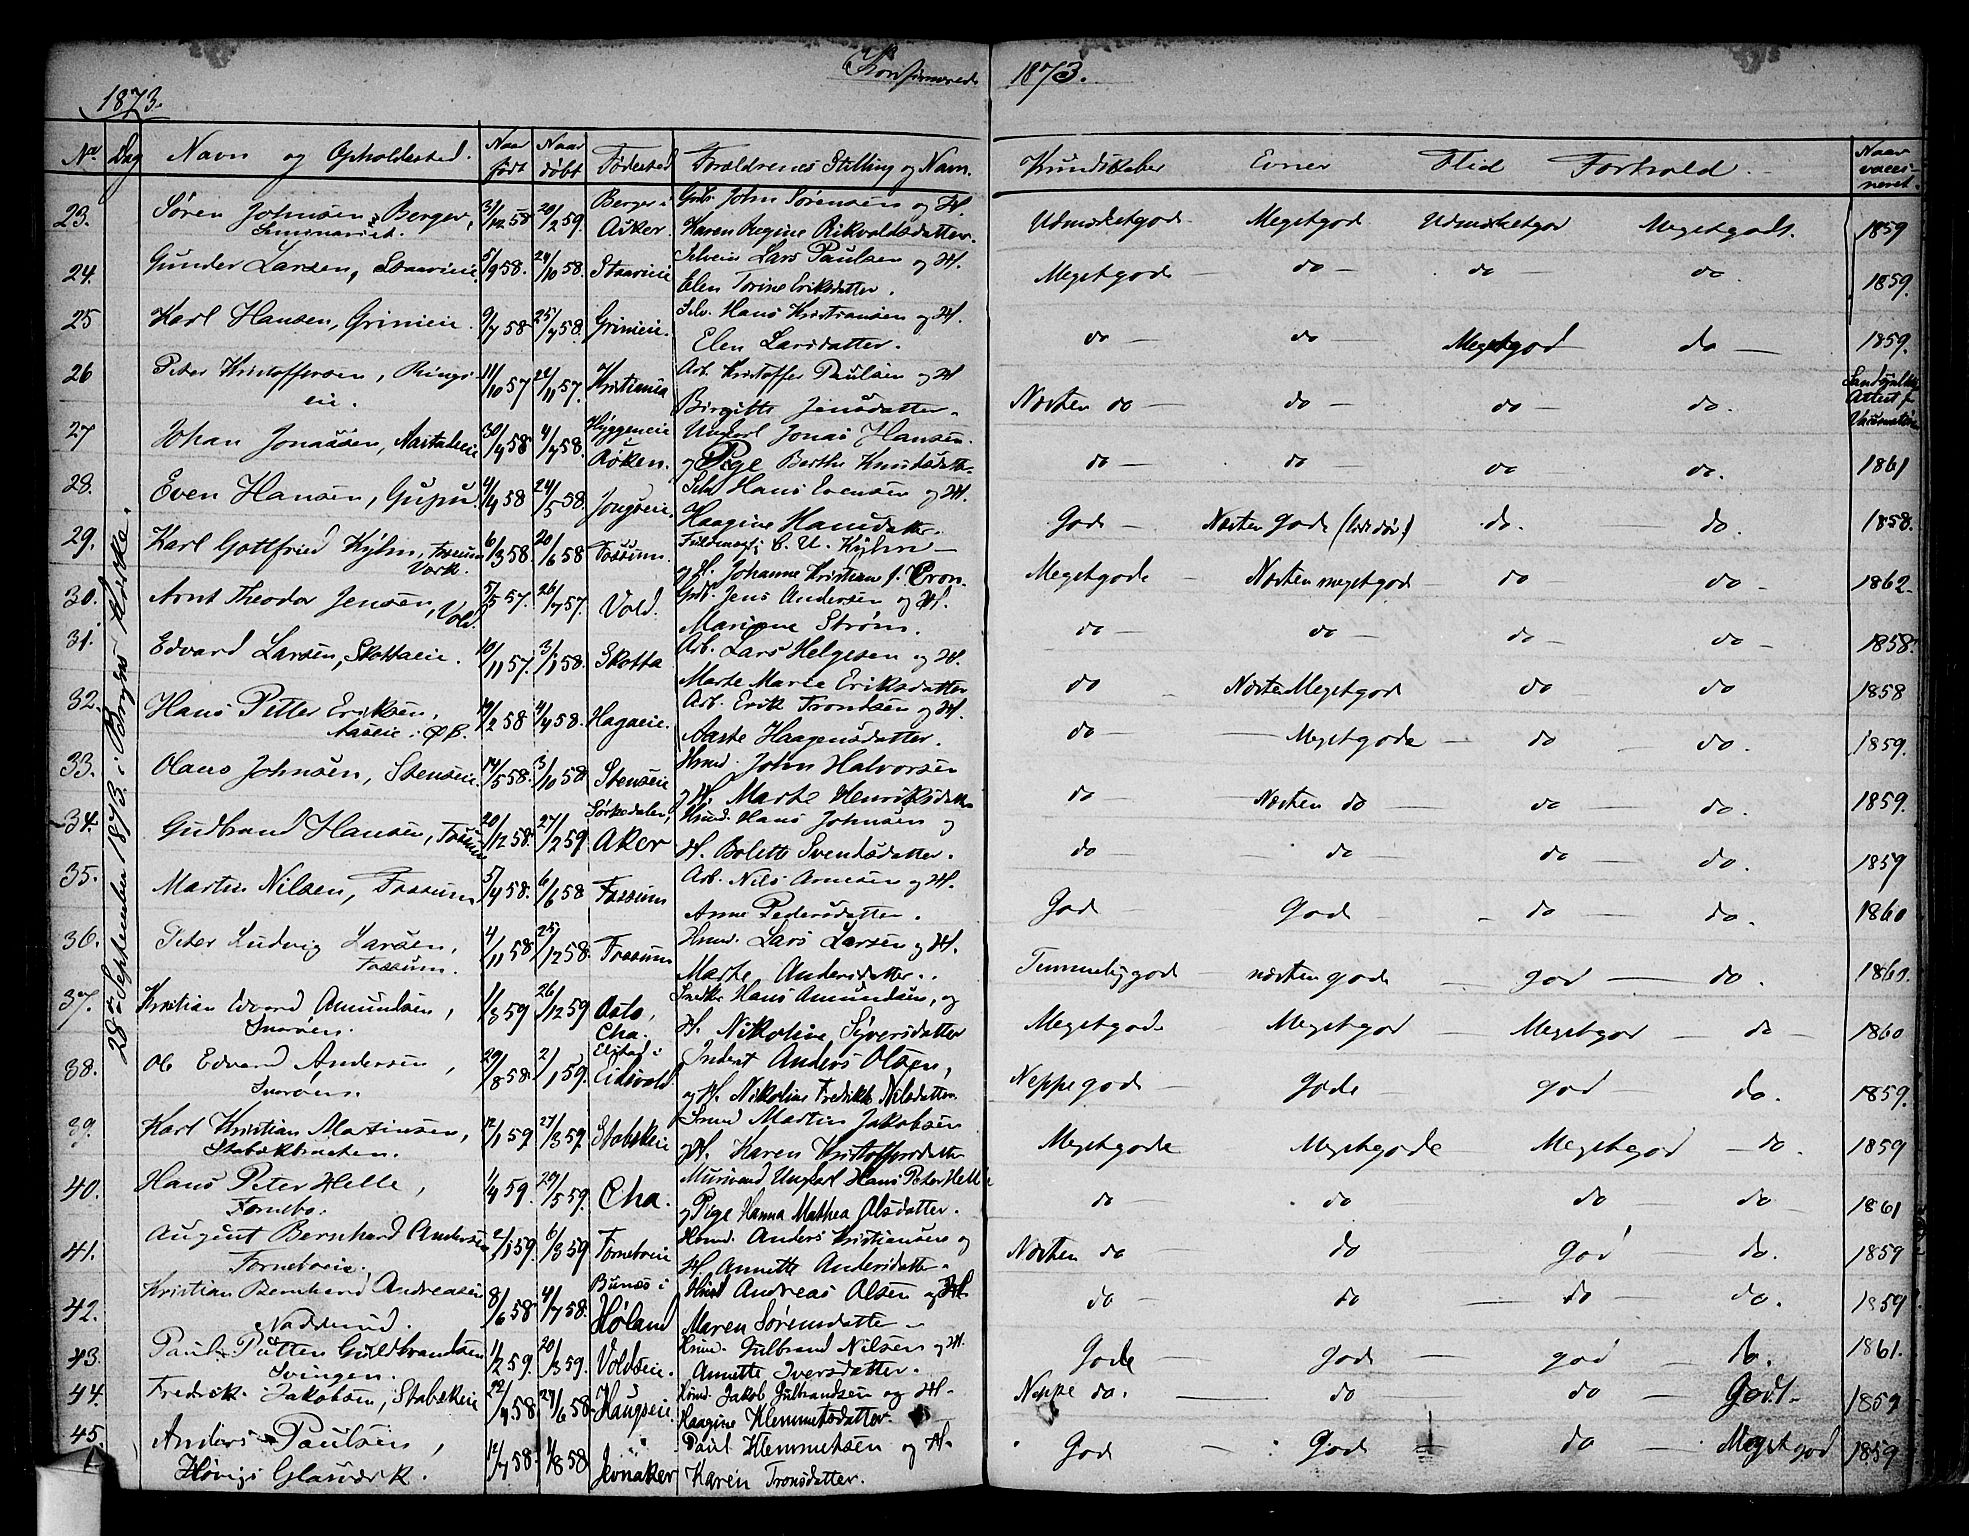 Konfirmerede 1873.
1873.
No Dag Navn og Opholdssted. Naar født Naar døbt Fødested Forældrenes Stilling og Navn. Kundskaber Evner Flid Forhold. Naar vaccineret.
28de September 1873 i Bryns Kirke.
23. Søren Johnsen, Berger, 31/12 58 20/2 59. Berger i Gbr. John Sørensen og H.
Seminariet. Asker. Karen Regine Rikvaldsdatter. Udmærketgod Megetgod Udmærketgod Megetgodt. 1859
24. Gunder Larsen, Stavereie 5/9 58. 24/10 58. Selveier Lars Paulsen og H.
Elen Torine Eriksdatter. Megetgode do do do 1859.
25 Karl Hansen, Grinieie. 9/7 58 25/7 58. Grinieie. Selv. Hans Kristiansen og H.
Elen Larsdatter. do do Megetgod do 1859.
26 Peter Kristoffersen, Rings 11/10 57 22/11 57. Kristiania Arb. Kristoffer Paulsen og H
eie. Birgitte Jensdatter. Næsten do do do do.
27 Johan Jonassen, 30/4 58 4/7 58. Hyggeneie Ungkarl Jonas Hansen
Røken. og Pige Berthe Knudsdatter do do do do. 1861
28. Even Hansen, 4/4 58 24/5 58. Jongseie. Selv Hans Evensen og H.
Haagine Hansdatter. Gode Næsten gode do. do. 1858.
29. Karl Gottfried Kyhn, Fossum 6/3 58 20/6 58 Fossum. Fuldmægtig C. U. Kyhn
Værk. og H. Johanne Kristiane f. Cron. Megetgode Næsten megetgod do do 1862.
30. Arnt Theodor Jensen, Vold. 5/5 57. 26/7 57. Vold. Gbr. Jens Andersen og H.
Mariane Strøm. do do do do 1858.
31. Edvard Larsen, Skottaeie. 10/11 57. 3/1 58. Skotta Arb. Lars Helgesen og H.
Marte Marie Eriksdatter do Næsten Megetgod do do 1858
32. Hans Petter Eriksen, 19/2 58 4/4 58. Hagaeie. Arb. Erik Trondsen og H.
Aaseie i Ø.B. Aaste Haagensdatter. do Megetgode do do. 1859.
33. Olaus Johnsen, Stenseie 14/5 58. 3/10 58 Stenseie Hmd. John Halvorsen
og H. Marte Henriksdatter do Næsten do do do. 1859.
34. Gudbrand Hansen, Fossum 20/12 58. 27/2 59 Sørkedalen, Hmd. Hans Johnsen og
Aker H. Bolette Svendsdatter. do do do do. 1859
35. Martin Nilsen, Fossum 5/4 58. 6/6 58 Fossum Arb. Nils Arnesen og H.
Anne Pedersdatter. God God do do. 1860
36. Peter Ludvig Larsen, 4/11 58 25/12 58. Fossum Hmd. Lars Larsen og H.
Fossum. Marte Andersdatter. Temmelig god næsten gode god do. 1860.
37. Kristian Edvard Amundsen, 1/3 59 26/12 59 Oslo, Snedker Hans Amundsen, og
Snarøen. Cha. H. Nikoline Syversdatter Megetgode Megetgod Megetgod do 1860
38. Ole Edvard Andersen, 29/8 58. 2/1 59. i Inderst Anders Olsen,
Snarøen. Eidsvold og H. Nikoline Fredrikke Nilsdatter. Neppe gode gode god do. 1859.
39. Karl Kristian Martinsen, 12/1 59 27/3 59. Stabekeie Smed Martin Jakobsen
Stabækbraaten. og H. Karen Kristoffersdatter Megetgode Megetgode Megetgod do. 1859
40. Hans Peter Helle, 1/4 59. 29/5 59. Cha. Mursvend Ungkarl Hans Peter Helle
Fornebo. og Pige Hanna Mathea Olsdatter. do do do do 1861
41. August Bernhard Andersen 2/1 59. 6/3 59 Forneboeie Hmd. Anders Kristiansen og
Forneboeie. H. Annette Andersdatter. Næsten do do god do. 1859
42. Kristian Bernhard Andreasen 8/6 58 4/7 58. Bunes i Hmd Andreas Olsen og H.
Nadderud. Høland Maren Sørensdatter do do do do. 1859
43. Paul Petter Guldbrandsen 1/2 59. 20/3 59. Voldseie. Hmd. Gulbrand Nilsen og H.
Svingen. Annette Iversdatter. Gode gode god do. 1861.
44. Fredrik Jakobsen, Stabækeie 22/4 58 27/6 58. Haugseie. Hmd. Jakob Gulbrandsen og H.
Haagine Klemmetsdatter Neppe do. do do Godt 1859
45. Anders Paulsen, 12/7 58. 1/8 58 Jevnaker Paul Klemmetsen og H.
Høvigs Glasværk. Karen Tronsdatter. God God do Megetgod 1859